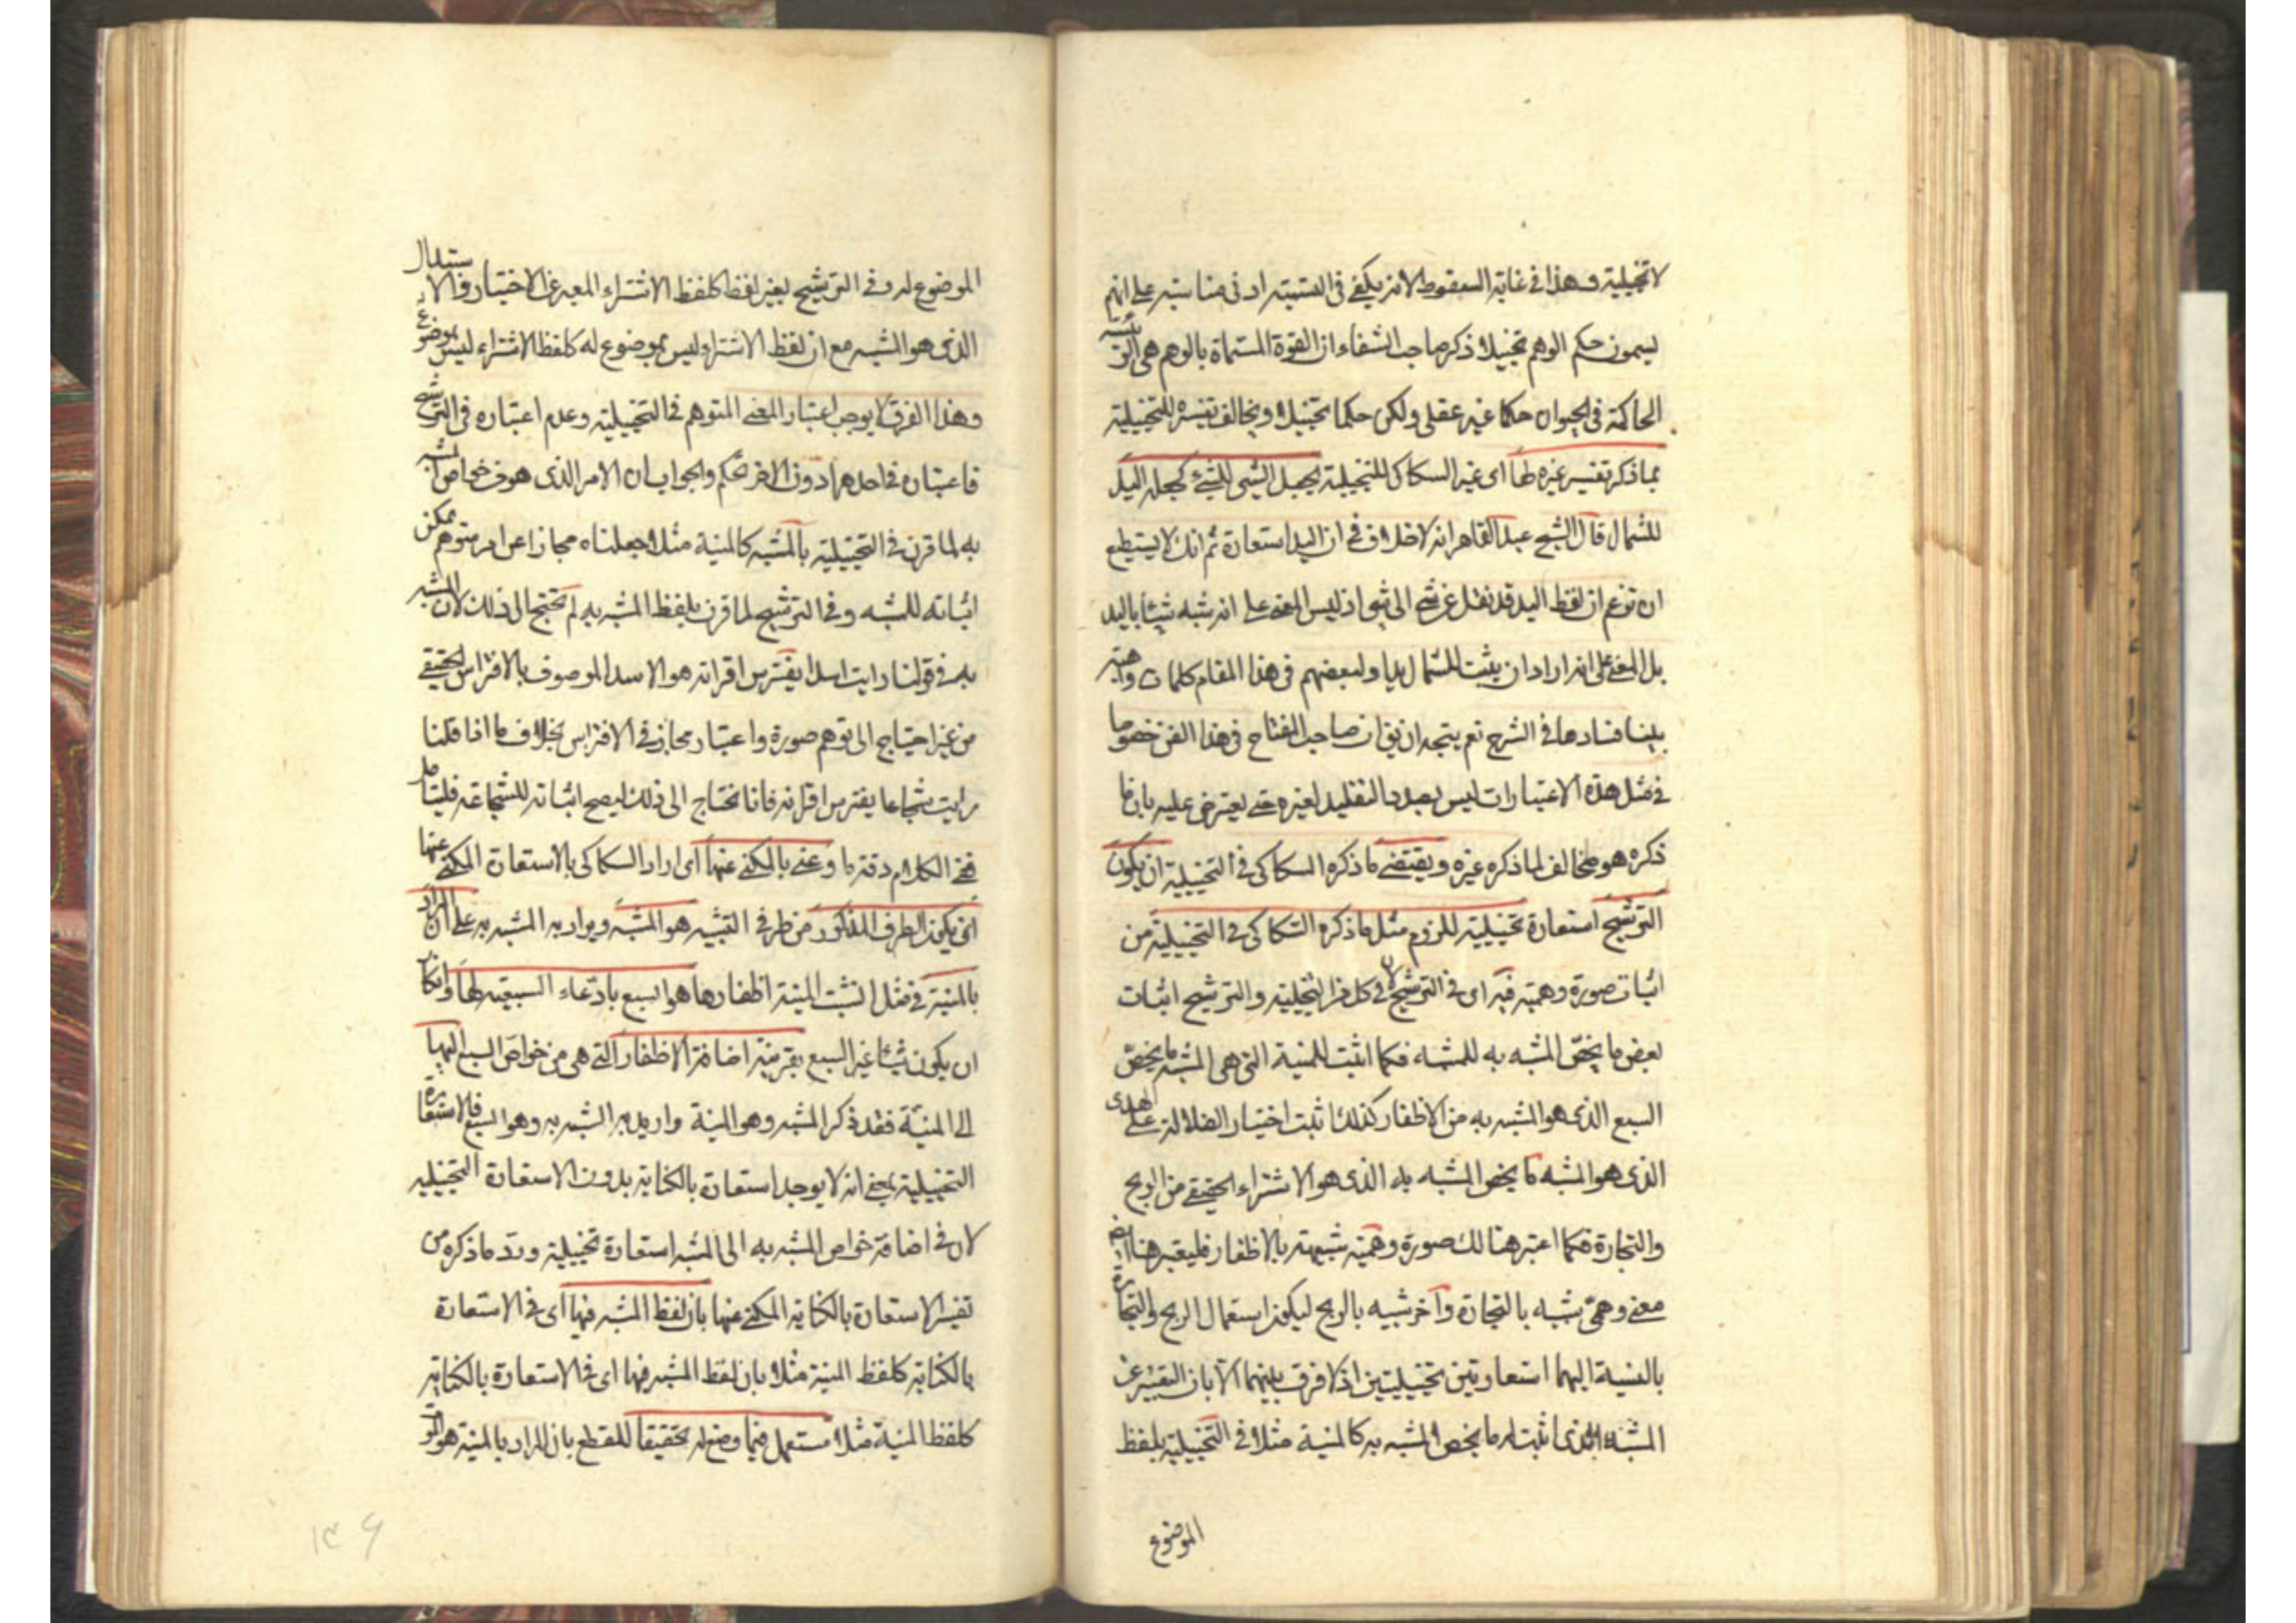 لا تخييلية وهذا في غاية السقوط لانه يكفي في التسمية ادنى مناسبة على انهم
يسمون حكم الوهم تخييلا ذكر صاحب الشفاء ان القوة المسماة بالوهم هي الرئيسة
الحاكمة في الحيوان حكما غير عقلي ولكن حكما تخييليا ويخالف تفسيره للتخييلية
بما ذكر تفسير غيره لها اى غير السكاكى للتخييلية بجعل الشئ للشئ كجعل اليد
للشمال قال الشيخ عبد القاهر انه لا خلاف في ان اليد استعارة ثم انك لا يستطيع
ان تزعم ان لفظ اليد قد نقل عن شئ الى شئ اذ ليس المعنى على انه شبه شيئا باليد
بل المعنى على انه اراد ان يثبت للشمال يدا ولبعضهم في هذا المقام كلمات واهية
بينا فسادها في الشرح نعم يتجه ان يق ان صاحب المفتاح في هذا الفن خصوصا
في مثل هذه الاعتبارات ليس بصدد التقليد لغيره حتى يعترض عليه بان ما
ذكره هو مخالف لما ذكره غيره ويقتضى ما ذكره السكاكى في التخييلية ان يكون
الترشيح استعارة تخييلية للزوم مثل ما ذكره السكاكى في التخييلية من
اثبات صورة وهمية فيه اى في الترشيح لان في كل من التخييلية والترشيح اثبات
بعض ما يخص المشبه به للمشبه فكما اثبت للمنية التى هى المشبه ما يخص
السبع الذى هو المشبه به من الاظفار كذلك اثبت اختيار الضلالة على الهدى
الذى هو المشبه ما يخص المشبه به الذى هو الاشتراء الحقيقى من الربح
والتجارة فكما اعتبر هنالك صورة وهمية شبيهة بالاظفار فليعتبر هنا ايض
معنى وهمى شبيه بالتجارة وآخر شبيه بالربح ليكون استعمال الربح والتجارة
بالنسبة اليهما استعارتين تخييليتين اذ لا فرق بينهما الا بان التعبير عن
المشبه الذى اثبت له ما يخص المشبه به كالمنية مثلا في التخييلية بلفظ
الموضوع
الموضوع له وفى الترشيح بغير لفظه كلفظ الاشتراء المعبر عن الاختيار والاستبدال
الذى هو المشبه مع ان لفظ الاشتراء ليس بموضوع له كلفظ الاشتراء ليس بموضوع
وهذا الفرق لا يوجب اعتبار المعنى المتوهم في التخييلية وعدم اعتباره في الترشيح
فاعتباره في احدهما دون الاخر تحكم والجواب ان الامر الذى هو من خواص المشبه
به لما قرن في التخييلية بالمشبه كالمنية مثلا جعلناه مجازا عن امر متوهم يمكن
اثباته للمشبه وفى الترشيح لما قرن بلفظ المشبه به لم تحتج الى ذلك لان المشبه
به في قولنا رايت اسدا يفترس اقرانه هو الاسد الموصوف بالافتراس الحقيقى
من غير احتياج الى توهم صورة واعتبار مجاز في الافتراس بخلاف ما اذا قلنا
رايت شجاعا يفترس اقرانه فانا نحتاج الى ذلك ليصح اثباته للشجاع فليتامل
ففى الكلام دقة ما وعنى بالمكنى عنها اى اراد السكاكى بالاستعارة المكنى عنها
ان يكون الطرف المذكور من طرفى التشبيه هو المشبه ويراد به المشبه به على ان المراد
بالمنية في مثل انشبت المنية اظفارها هو السبع بادعاء السبعية لها وانكار
ان يكون شيئا غير السبع بقرينة اضافة الاظفار التى هى من خواص السبع اليها
الى المنية فقد ذكر المشبه وهو المنية واريد به المشبه به وهو السبع فالاستعارة
التخييلية يعنى انه لا يوجد استعارة بالكناية بدون الاستعارة التخييلية
لان في اضافة خواص المشبه به الى المشبه استعارة تخييلية ورد ما ذكره من
تفسير الاستعارة بالكناية المكنى عنها بان لفظ المشبه فيها اى في الاستعارة
بالكناية كلفظ المنية مثلا بان لفظ المشبه فيها اى في الاستعارة بالكناية
كلفظ المنية مثلا مستعمل فيما وضع له تحقيقا للقطع بان المراد بالمنية هو
۱۳۶